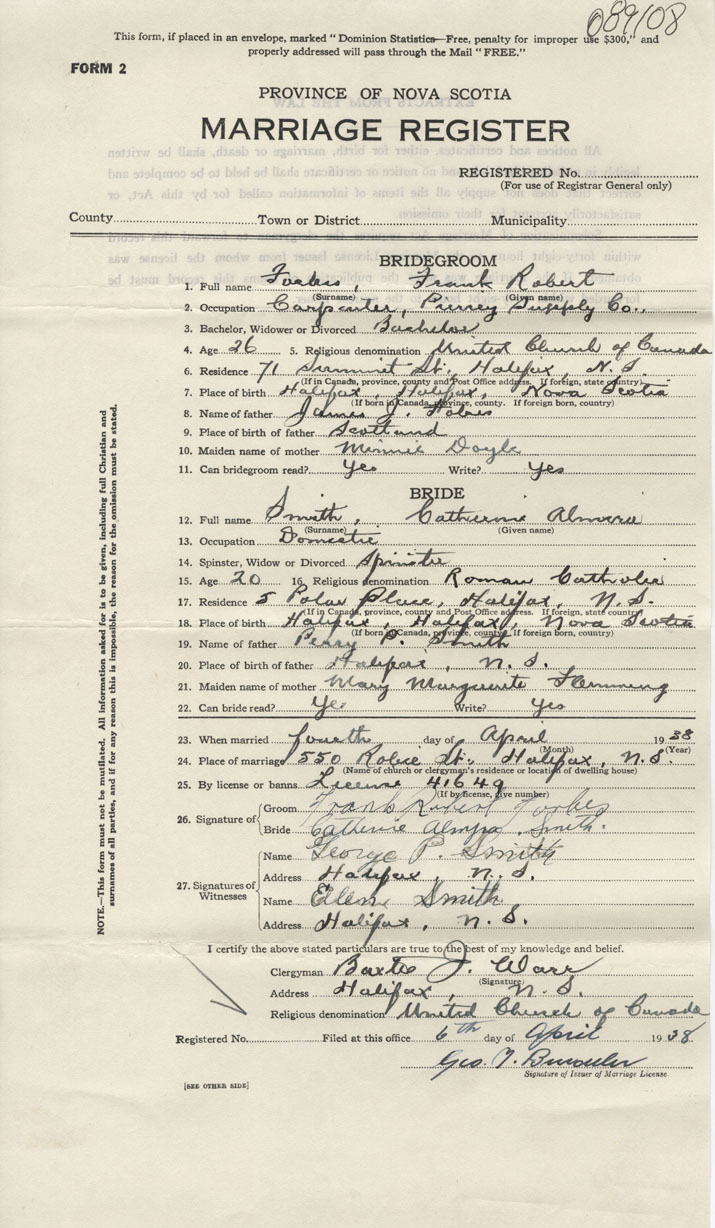 089108
This form, if placed in an envelope, marked "Dominion Statistics—Free, penalty for improper use $300," and
properly addressed will pass through the Mail "FREE."
FORM 2
PROVINCE OF NOVA SCOTIA
MARRIAGE REGISTER
REGISTERED No.
(For use of Registrar General only)
County Town or District Municipality
BRIDEGROOM
1. Full name Forbes, Frank Robert
(Surname) (Given name)
2. Occupation Carpenter, Supply Co.,
3. Bachelor, Widower or Divorced Bachelor
4. Age 26 5. Religious denomination United Church of Canada
6. Residence 71 Summit St., Halifax, N.S.
(If in Canada, province, county and Post Office address. If foreign, state country)
7. Place of birth Halifax, Halifax, Nova Scotia
(If born in Canada, province, county. If foreign born, country)
8. Name of father James J. Forbes
9. Place of father Scotland
10. Maiden name of mother Minnie Doyle
11. Can bridegroom read? Yes Write? Yes
BRIDE
12. Full name Smith, Catherine Almira
(Surname) (Given name)
13. Occupation Domestic
14. Spinster, Widow or Divorced Spinster
15. Age 20 16. Religious denomination Roman Catholic
17. Residence 5 Polar Place, Halifax, N.S.
(If in Canada, province, county and Post Office address. If foreign, state country)
18. Place of birth Halifax, Halifax, Nova Scotia
(If born in Canada, province, county. If foreign born, country)
19. Name of father Percy P. Smith
20. Place of birth of father Halifax, N.S.
21. Maiden name of mother Mary Marguerite Flemming
22. Can bride read? Yes Write? Yes
23. When married fourth day of April 1938
(Month) (Year)
24. Place of marriage 550 Robie St., Halifax, N.S.
(Name of church or clergyman's residence or location of dwelling house)
25. By license or banns License 41649
(If by license, give number)
26. Signature of
Groom Frank Robert Forbes
Bride Catherine Almira Smith.
27. Signatures of Witnesses
Name George P. Smith
Address Halifax, N.S.
Name Ellen Smith
Address Halifax, N.S.
I certify the above stated particulars are true to the best of my knowledge and belief.
Clergyman Baxter J. Warr
(Signature)
Address Halifax, N.S.
Religious denomination United Church of Canada
Registered No. Filed at this office 6th day of April 1938
Geo. T.
Signature of Issuer of Marriage License.
[SEE OTHER SIDE]
NOTE.—This form must not be mutilated. All information asked for is to be given, including full Christian and
surnames of all parties, and if for any reason this is impossible, the reason for the omission must be stated.